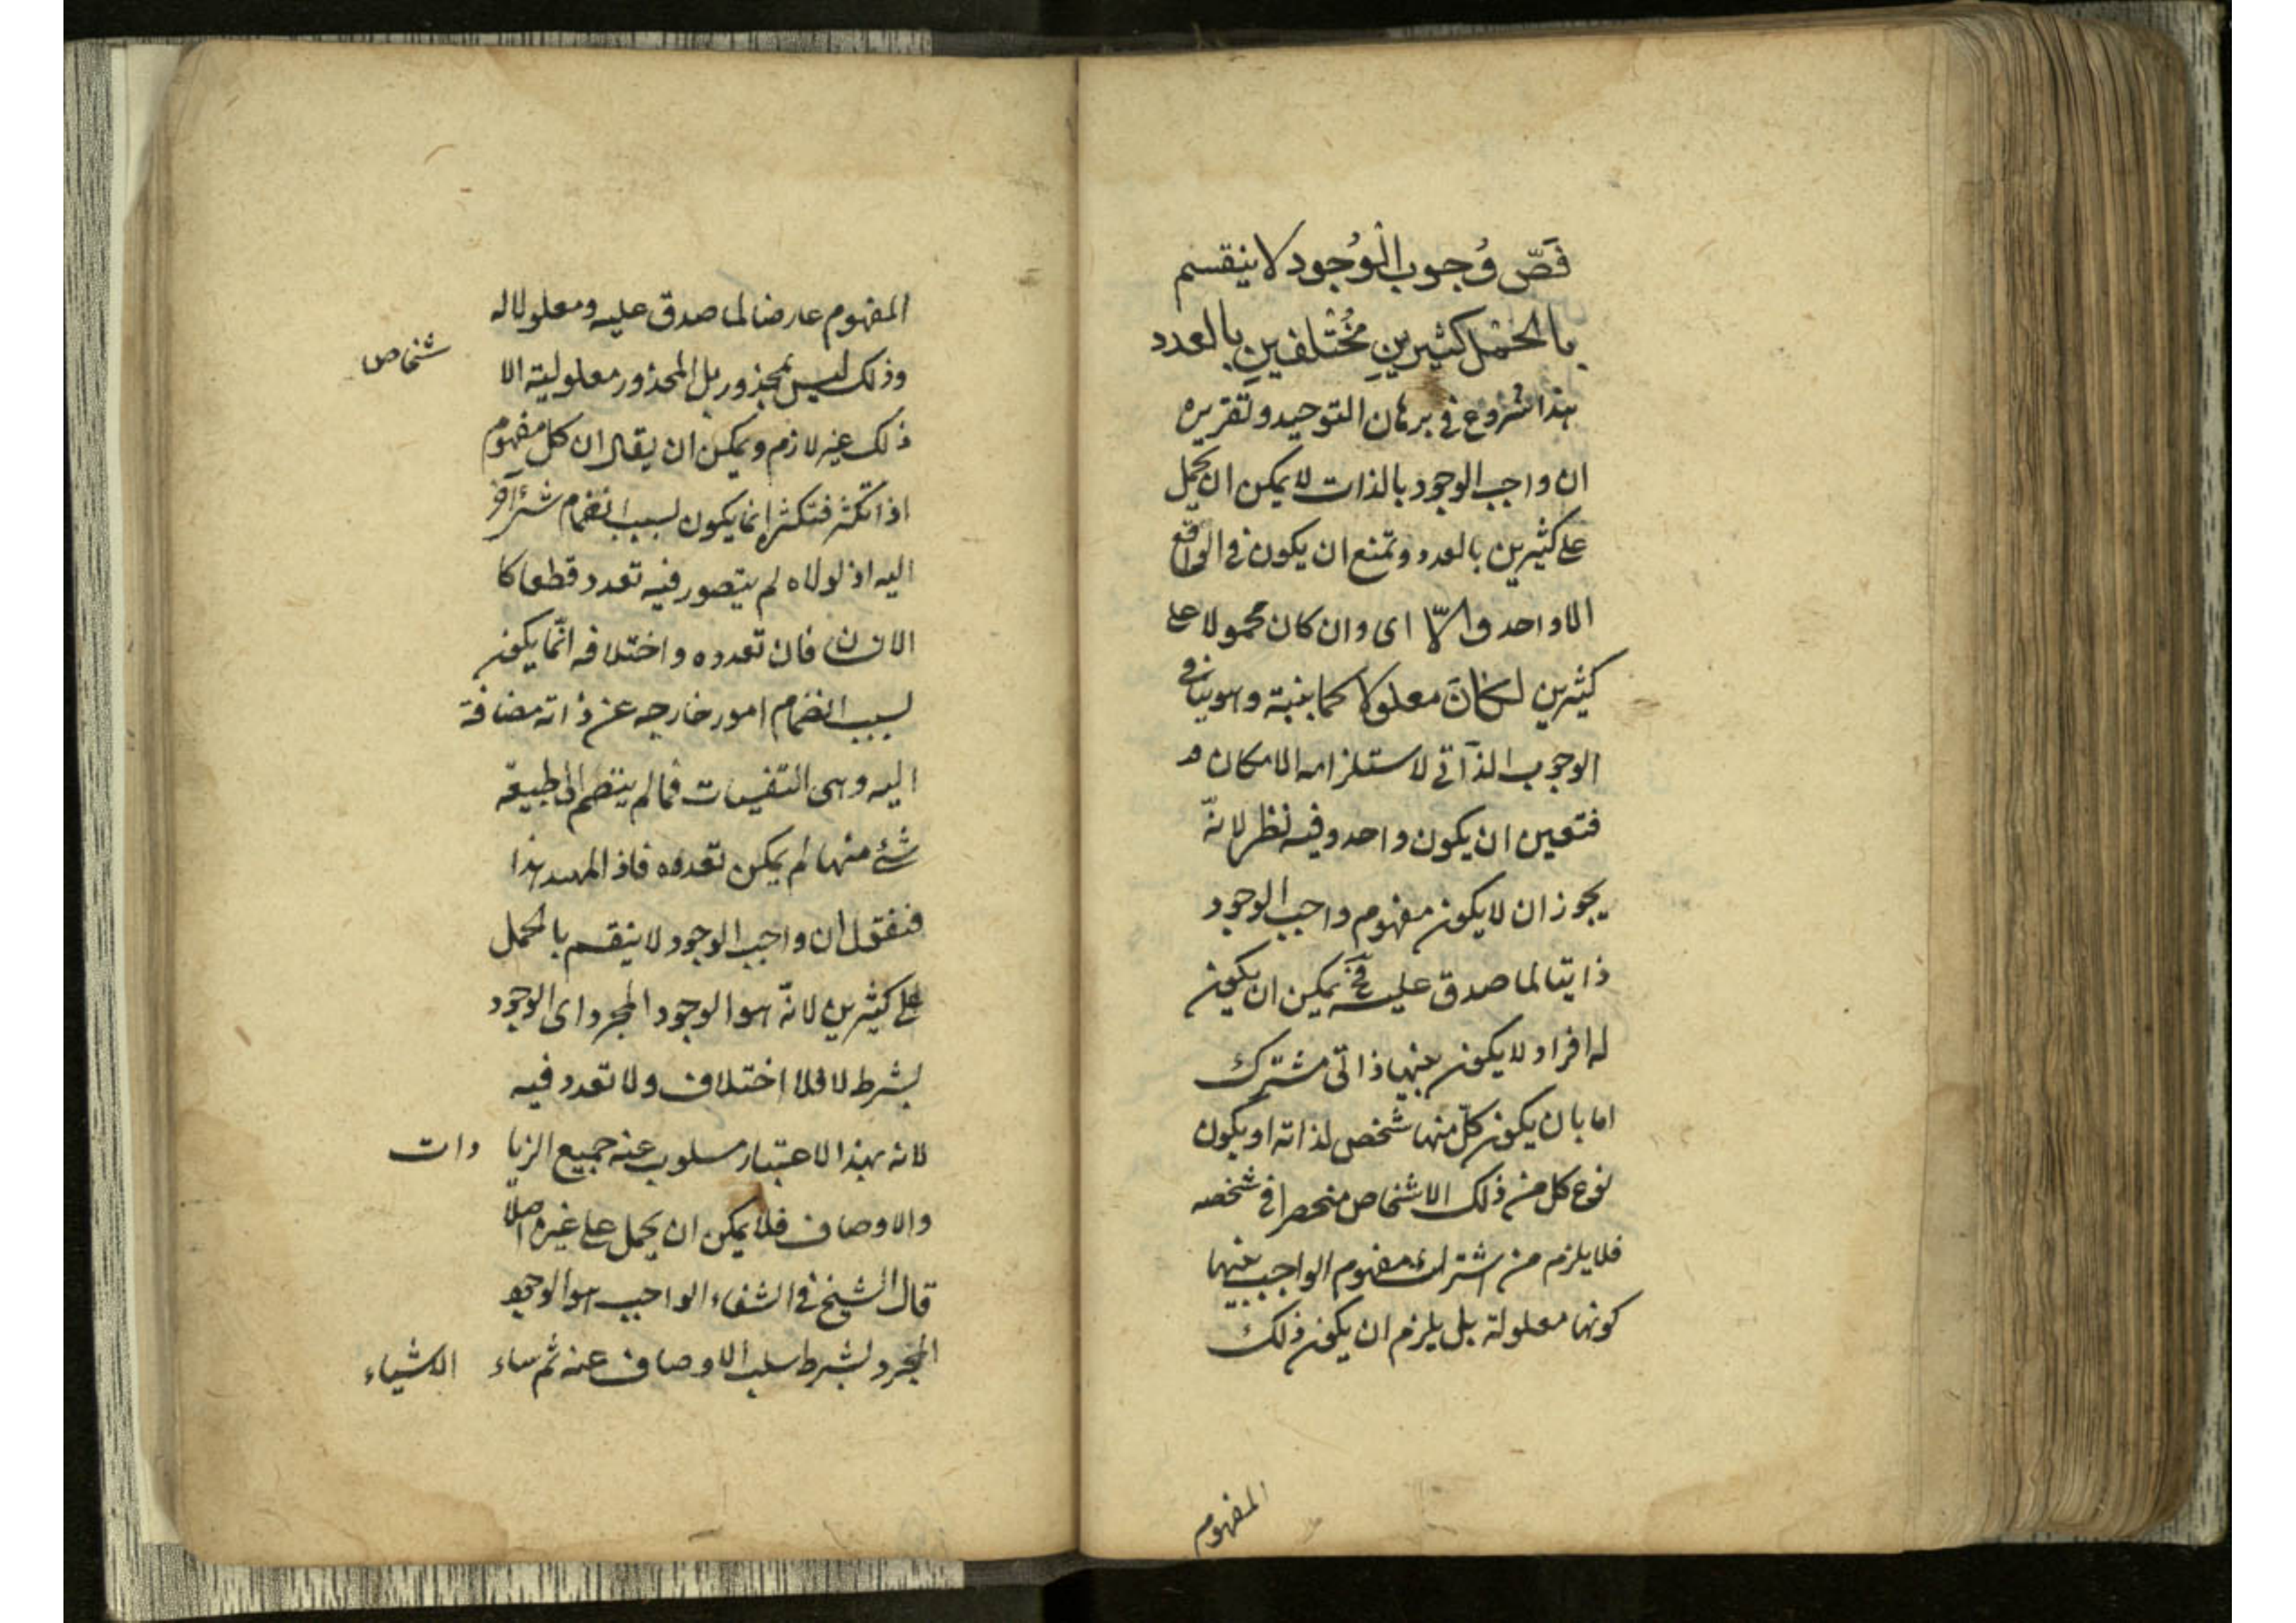 فَصّ وُجوب الْوُجود لا ينقسم
بالحَمْل كثيرينِ مُخْتلفينِ بالعدد
هذا شروع في برهان التوحيد وتقريره
ان واجب الوجود بالذات لا يمكن ان يحمل
على كثيرين بالعدد ويمتنع ان يكون في الواقع
الا واحد والّا اى وان كان محمولا على
كثيرين لكَانَ معلولا كما بينته وهو ينافى
الوجوب الذآتى لاستلزامه الامكان
فتعين ان يكون واحد وفيه نظر لانّه
يجوز ان لا يكون مفهوم واجب الوجود
ذاتيا لما صدق عليه فح يمكن ان يكون
له افراد لا يكون بينها ذاتى مشترك
اما بان يكون كلّ منها شخص لذاته او يكون
نوع كل من ذلك الاشخاص منحصرا في شخصه
فلا يلزم من اشتراك مفهوم الواجب بينها
كونها معلولة بل يلزم ان يكون ذلك
المفهوم
المفهوم عارضا لما صدق عليه ومعلولا له
وذلك ليس بمحذور بل المحذور معلولية الا شخاص
ذلك غير لازم ويمكن ان يقال ان كل مفهوم
اذا تكثر فتكثره انما يكون بسبب انضمام شئ آخر
اليه اذ لولاه لم يتصور فيه تعدد قطعا كا
الانسان فان تعدده واختلافه انّما يكون
بسبب انضمام امور خارجه عن ذاته مضافة
اليه وهى التعينات فمالم ينضم الى طبيعة
شئ منها لم يمكن تعدده فاذا تمهد هذا
فنقول ان واجب الوجود لا ينقسم بالحمل
على كثيرين لانّه هو الوجود المجرد اى الوجود
بشرط لا فلا اختلاف ولا تعدد فيه
لانه بهذا الاعتبار مسلوب عنه جميع الزيا دات
والاوصاف فلا يمكن ان يحمل على غيره اصلًا
قال الشيخ في الشفاء الواجب هو الوجود
المجرد بشرط سلب الاوصاف عنه ثم ساء الاشياء